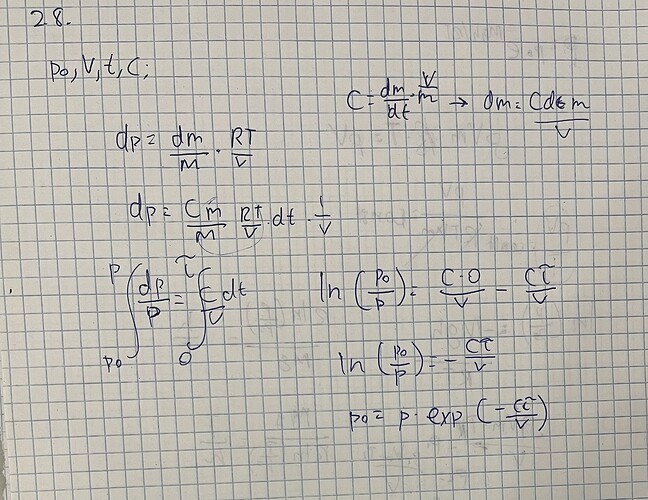 28.
p₀, V, t, C;
C = dm/dt · V/m → dm = Cdt m/V
dp = dm/M · RT/V
dp = Cm/M RT/V · dt · 1/V
∫_{p₀}^{p} dp/p = ∫_{0}^{τ} C/V dt
ln (p₀/p) = C·0/V - Cτ/V
ln (p₀/p) = - Cτ/V
p₀ = p · exp (- Cτ/V)